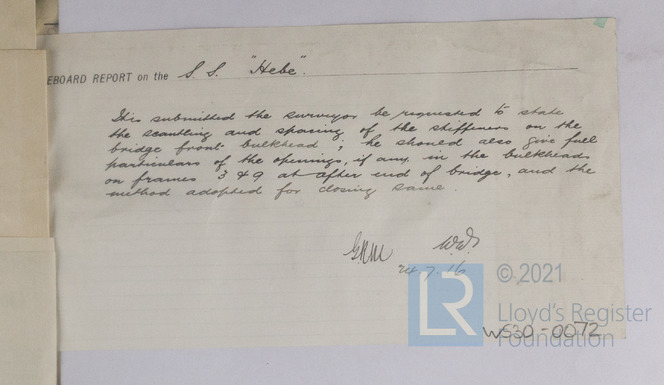 EBOARD REPORT on the S.S. "Hebe".
This submitted the surveyor be requested to state
the scantling and spacing of the stiffeners on the
bridge front bulkhead; he should also give full
particulars of the openings, if any in the bulkheads
on frames 3 & 9 at after end of bridge, and the
method adopted for closing same.
24.7.16
LR
© 2021
Lloyd's Register
Foundation
W530-0072